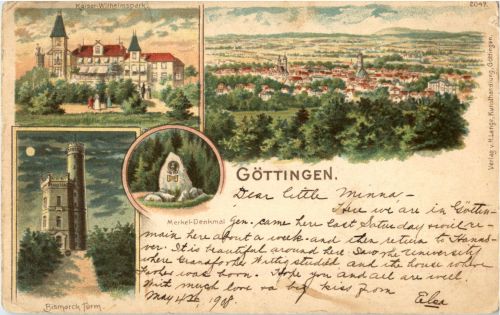 Kaiser-Wilhelmspark.
2047.
Verlag v. H. Lange, Kunsthandlung, Göttingen.
Merkel-Denkmal
Bismarck Turm.
GÖTTINGEN.
Dear little Minna –
Here we are in Göttin-
gen, came here last Saturday & will re-
main here about a week and then return to Hano-
ver. It is beautiful around here. Saw the University
where Grandfather Wittig studied and the house where
he was born. Hope you and all are well.
With much love & a big kiss from
May 4/26, 1908. Elsa